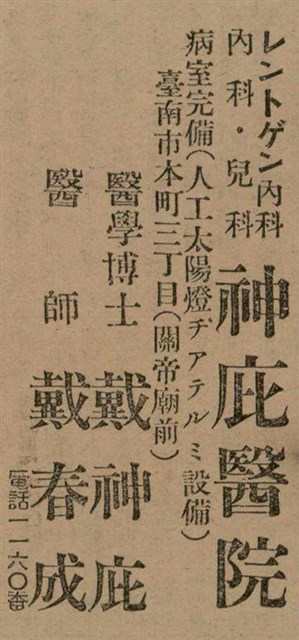 レントゲン內科
內科・兒科
神庇醫院
病室完備(人工太陽燈ヂアテルミ設備)
臺南市本町三丁目(關帝廟前)
醫學博士 戴神庇
醫師 戴春成
電話一一六〇番